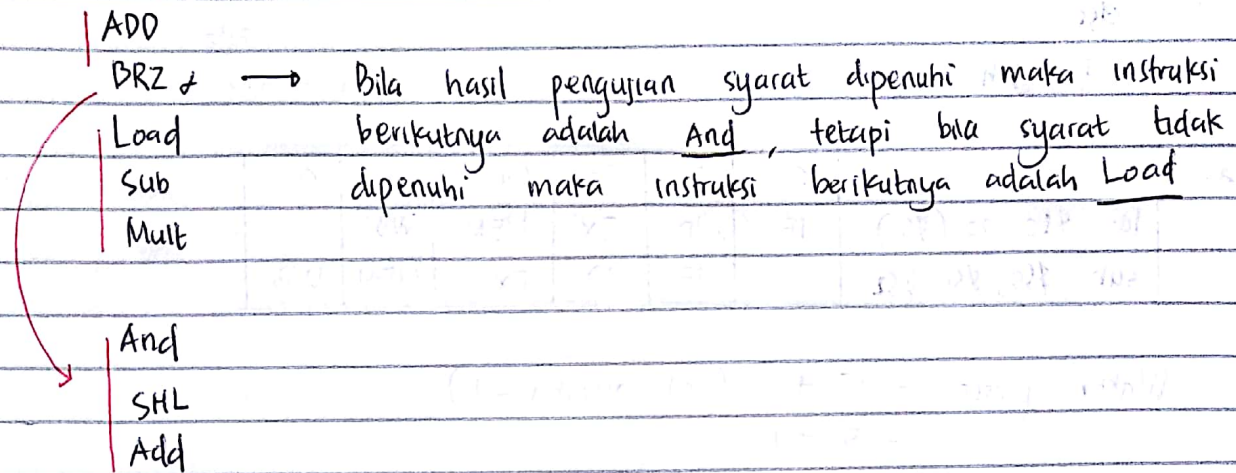 ADD
BRZ d → Bila hasil pengujian syarat dipenuhi maka instruksi
Load berikutnya adalah And, tetapi bila syarat tidak
Sub dipenuhi maka instruksi berikutnya adalah Load
Mult
And
SHL
Add